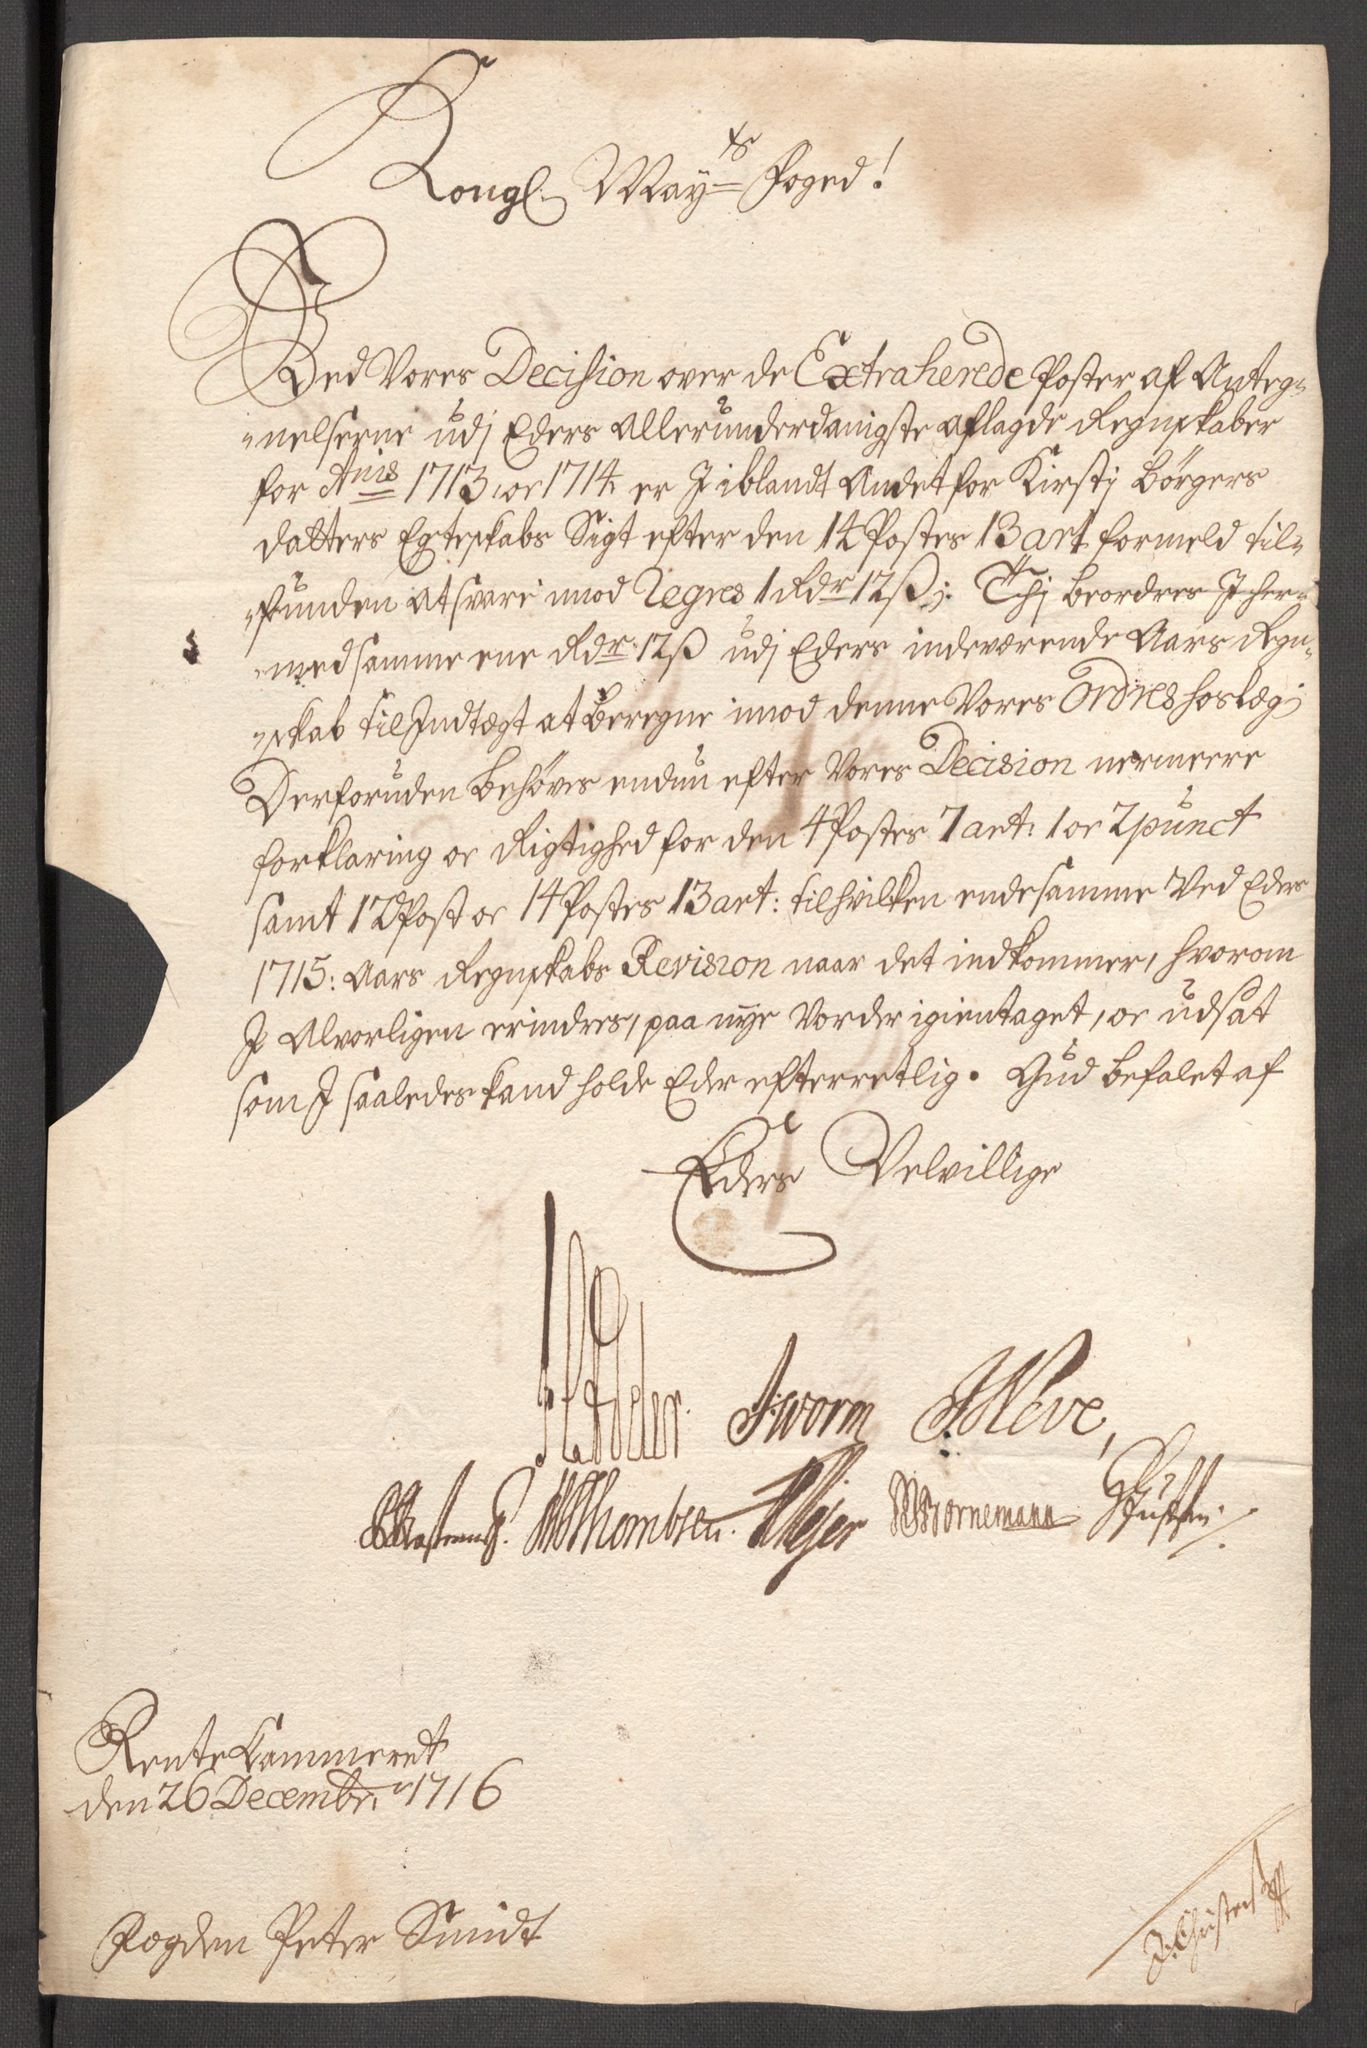 Kongl. May:ts Foged!
Ved Vores Decission over de Extraherede Poster af Anteg-
nelserne udj Eders Allerunderdanigste aflagde Regnskaber
for Anis 1713 oc 1714 er I iblandt Andet for Kirstj Børgers
datters Egteskabs Sigt efter den 14 Postes 13 art formeld til-
funden at svare imod Regres 1 Rdr 12ß j: Thj beordres I her-
med samme ene Rdr: 12ß udj Eders indeværende Aars Regn-
skab til Indtægt at beregne imod denne Vores Ordres hoslæg;
Derforuden behøves endnu efter Vores Decision nermeere
forklaring oc Rigtighed for den 4 Postes 7 art: 1 oc 2 punct
samt 12 Post oc 14 Postes 13 art: til hvilken ende samme Ved Eders
1715: Aars Regnskabs Revision naar det indkommer, hvorom
I Alvorligen erindres, paa nye Vorder igientaget, oc udsat
som I saaledes kand holde Eder efterretlig. Gud befalet af
Eders Velvillige
Adler. J: Worm Neve,
Thombsen. Mejer Bornemann
Rente Cammeret
den 26 Decembr: 1716
Fogden Peter Smidt